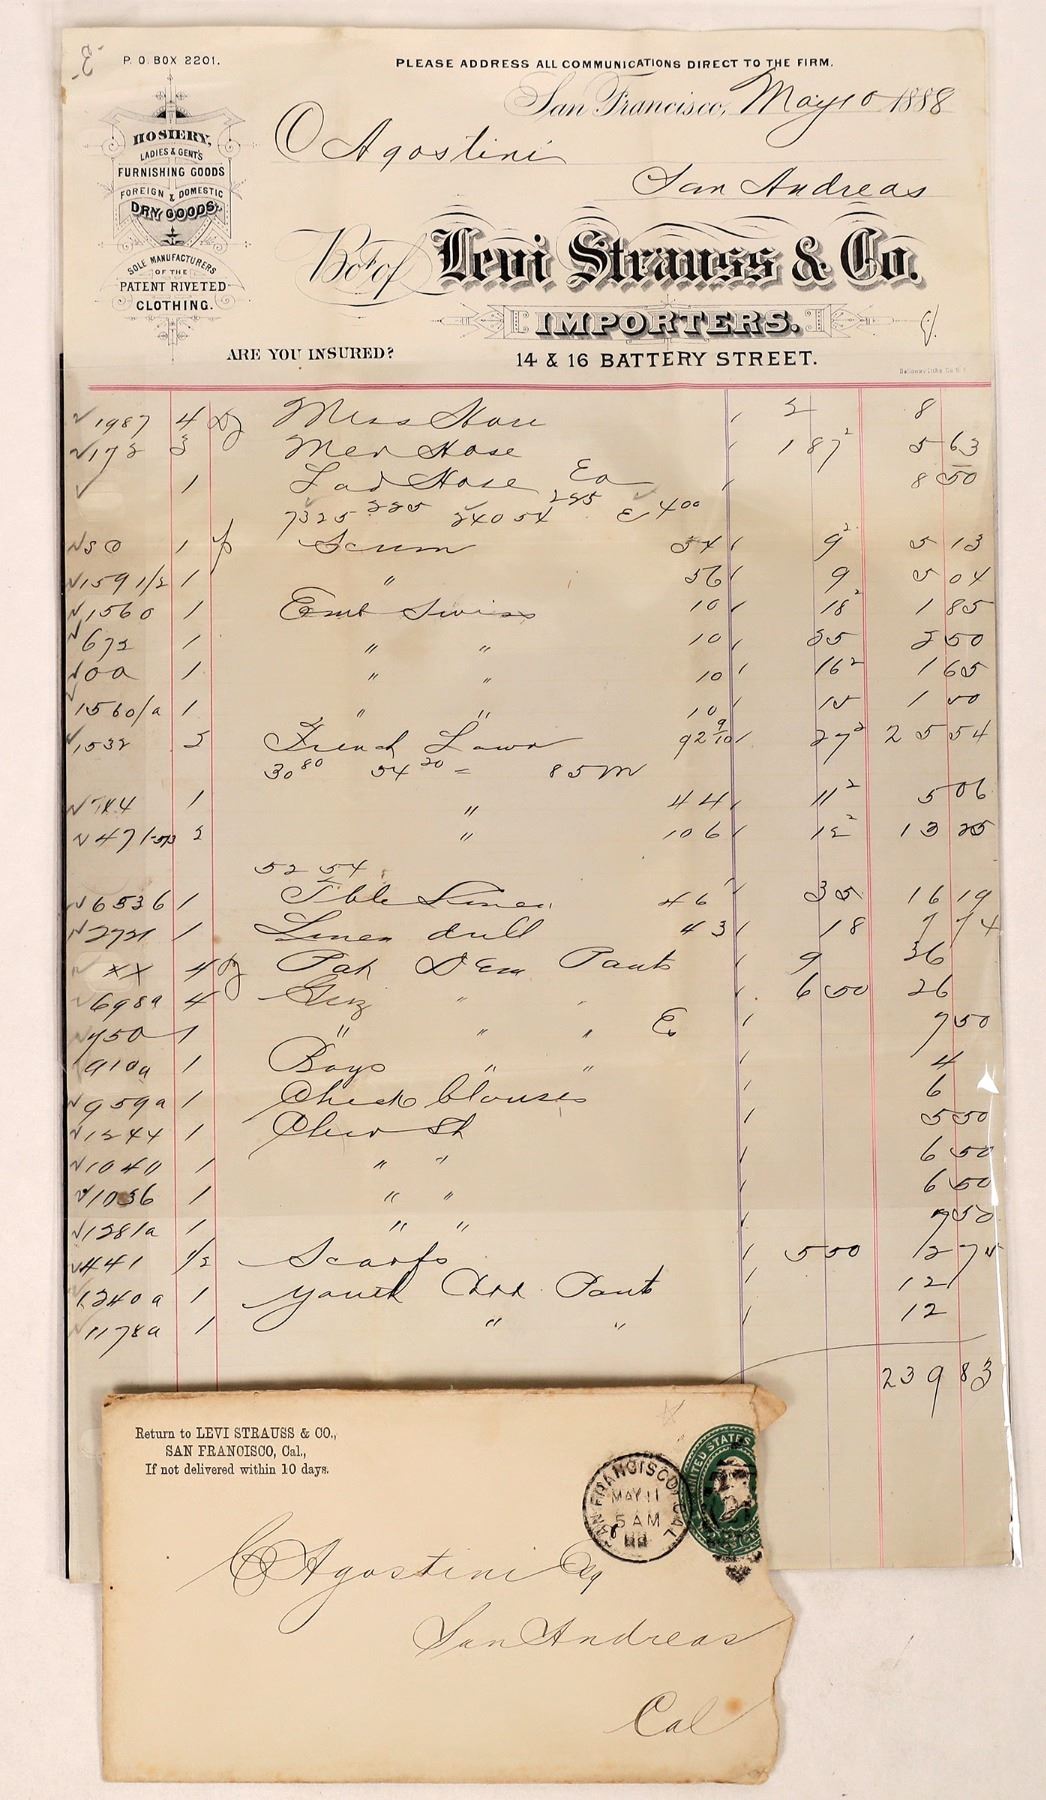 P. O. BOX 2201.
PLEASE ADDRESS ALL COMMUNICATIONS DIRECT TO THE FIRM.
San Francisco, May 10 1888
C Agostini
San Andreas
HOSIERY,
LADIES & GENT'S
FURNISHING GOODS
FOREIGN & DOMESTIC
DRY GOODS.
SOLE MANUFACTURERS
OF THE
PATENT RIVETED
CLOTHING.
Bot of Levi Strauss & Co.
IMPORTERS.
ARE YOU INSURED?
14 & 16 BATTERY STREET.
1987 4 Dz Miss Hose 2 8
172 3 Mer Hose 187² 5 63
1 Lad Hose Ea 8 50
7325 225 24054 225 E 400
50 1 p Scrim 54 9² 5 13
1591/2 1 " 56 9 5 04
1560 1 Emb Swiss 10 18² 1 85
672 1 " " 10 25 2 50
00a 1 " " 10 16² 1 65
1560/a 1 " " 10 15 1 50
1532 3 French Lawn 92 9/10 27² 25 54
30 80 54 20 = 85 m
1 " 44 11² 5 06
2 " 106 12² 13 25
52 54
6536 1 Tble Linen 46 35 16 19
1 Linen drill 43 18 7 74
XX 4 Dz Pat Dem Pants 9 36
698a 4 " " 6 50 26
750 1 " " " E 7 50
910a 1 Boys " " 4
959a 1 Check blouses 6
1244 1 Chev Sh 5 50
1040 1 " " 6 50
1036 1 " " 6 50
1281a 1 " " 7 50
441 1/2 Scarfs 5 50 2 75
1240a 1 Youth Pants 12
1178a 1 " " 12
239 83
Return to LEVI STRAUSS & CO.,
SAN FRANCISCO, Cal.,
If not delivered within 10 days.
UNITED STATES
SAN FRANCISCO CAL
MAY 11
5 AM
88
C Agostini Esq
San Andreas
Cal